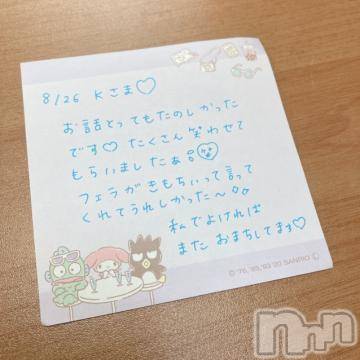 8/26 Kさま♡
お話とってもたのしかった
です♡ たくさん笑わせて
もらいましたぁ
フェラがきもちいって言って
くれてうれしかった〜
私でよければ
また おまちしてます♡
© '76, '85, '93, '20 SANRIO